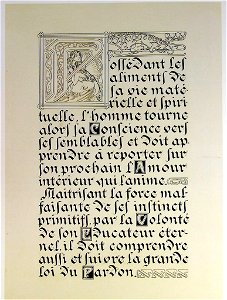 Possédant les
aliments de
sa vie maté
rielle et spiri
tuelle, l'homme tourne
alors sa Conscience vers
ses semblables et doit ap
prendre à reporter sur
son prochain l'Amour
intérieur qui l'anime.
Maîtrisant la force mal
faisante de ses instincts
primitifs par la Volonté
de son Educateur éter-
nel, il doit comprendre
aussi et suivre la grande
loi du Pardon.